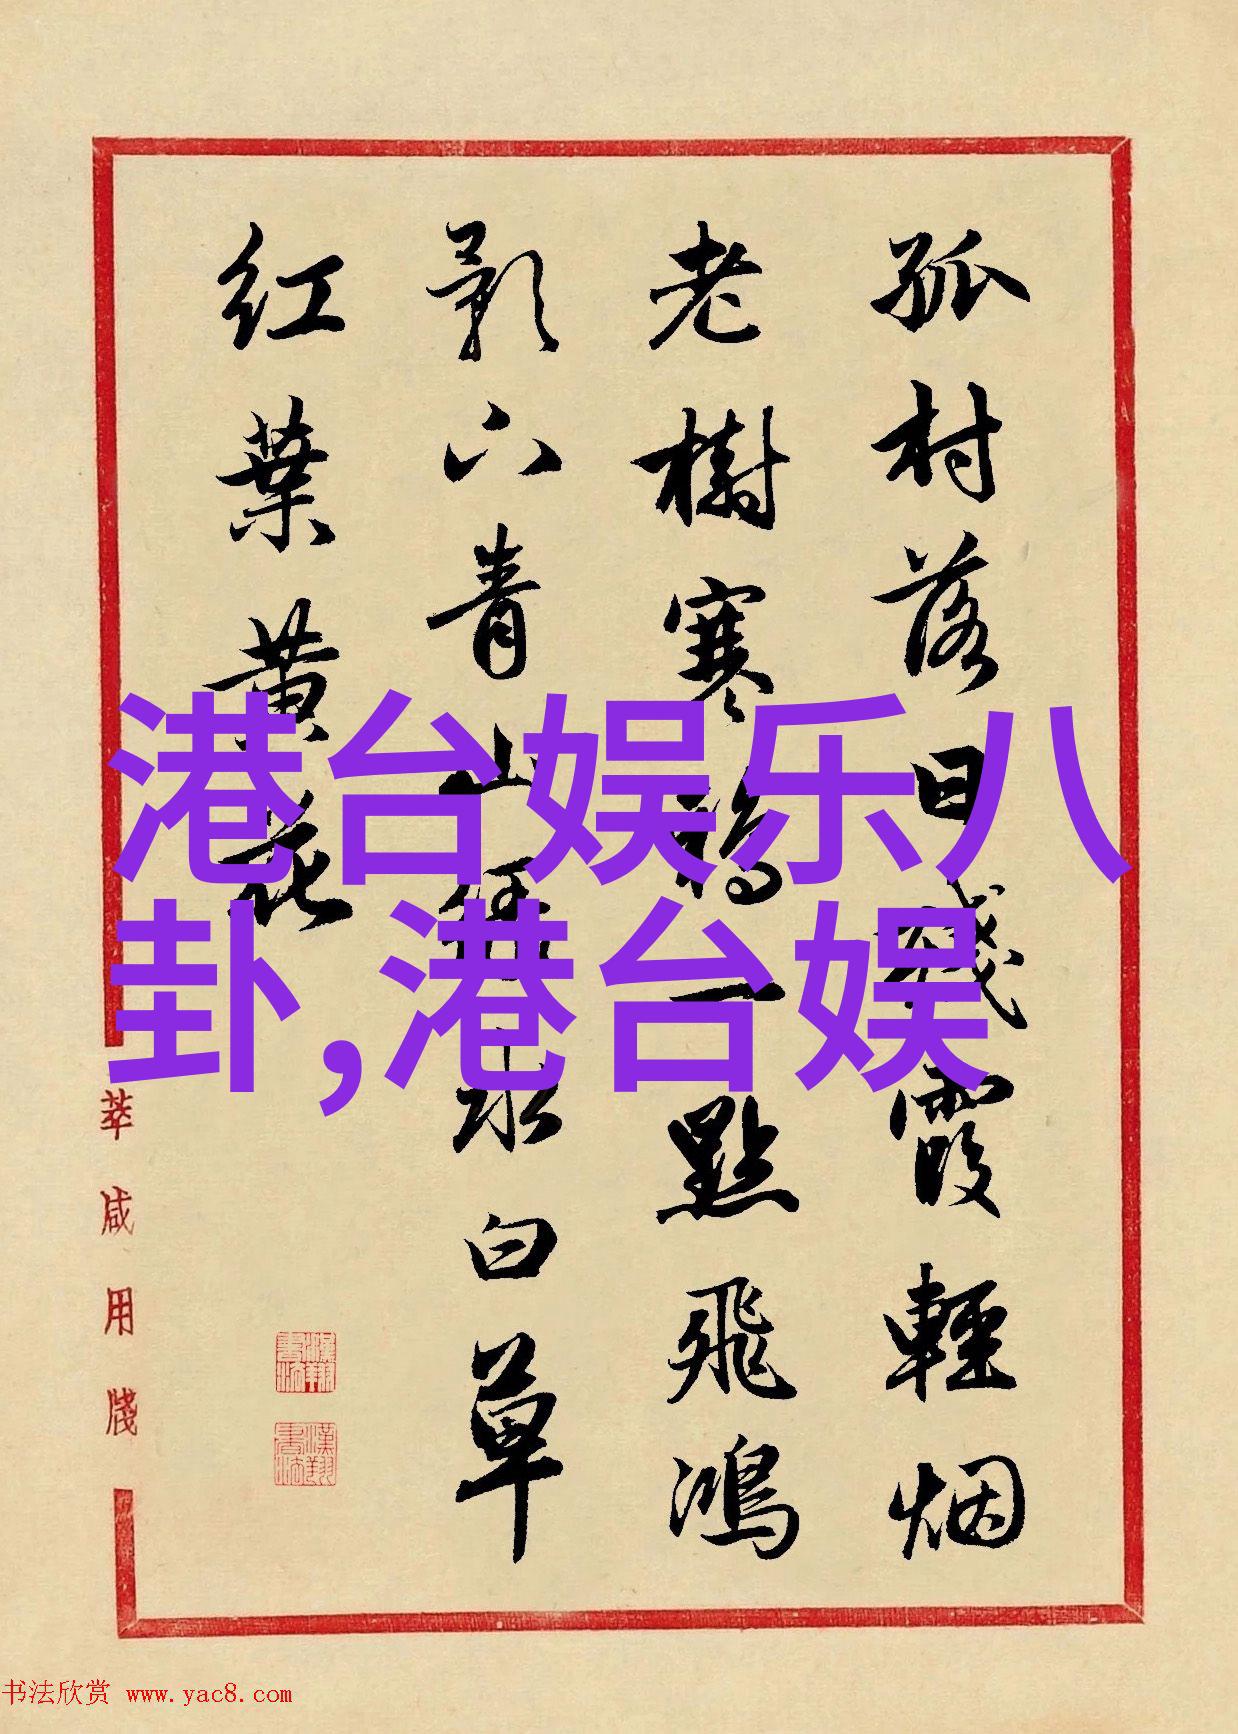 孤村落日残霞輕烟
老樹寒鴉一點飛鴻
影下青山緑水白草
红葉黄花
萃咸用牋
港台娱乐八
卦,港台娱
书法欣赏 www.yac8.com